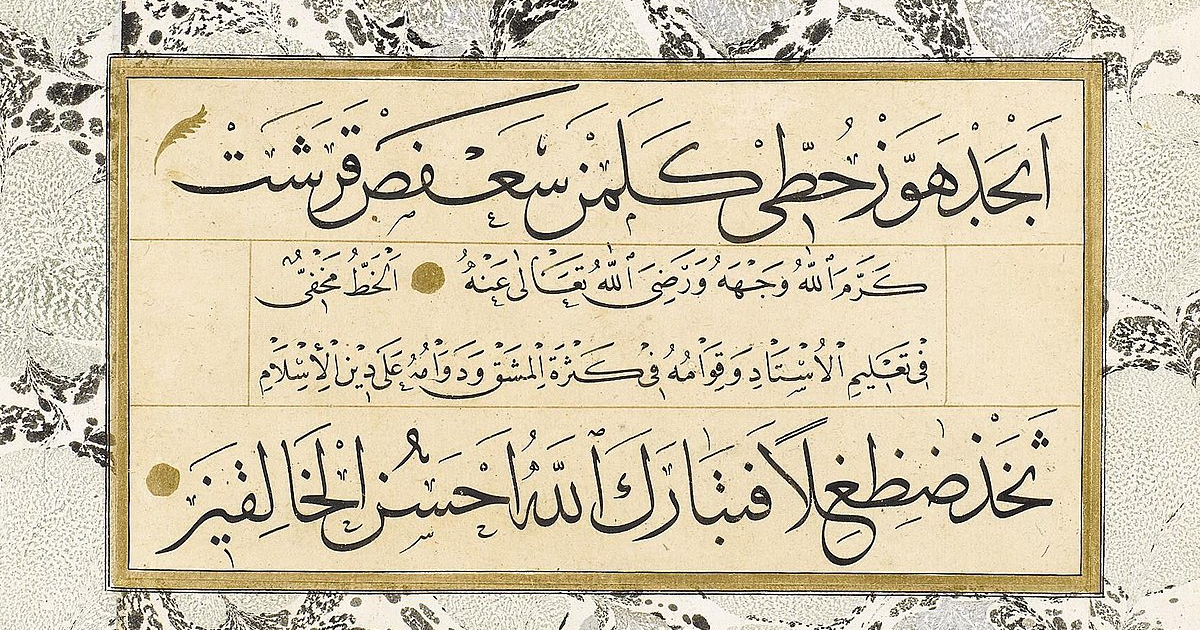 اَبْجَدْ هَوَّزْ حُطِّي كَلَمَنْ سَعْفَصْ قَرَشَتْ
كَرَّمَ اللهُ وَجْهَهُ وَرَضِيَ اللهُ تَعَالَى عَنْهُ اَلْخَطُّ مَخْفِيٌّ
فِي تَعْلِيمِ الْاُسْتَادِ وَقِوَامُهُ فِي كَثْرَةِ الْمَشْقِ وَدَوَامُهُ عَلَى دِينِ الْاِسْلَامِ
ثَخَذْ ضَظِغٍ لَا فَتَبَارَكَ اللهُ اَحْسَنُ الْخَالِقِينَ